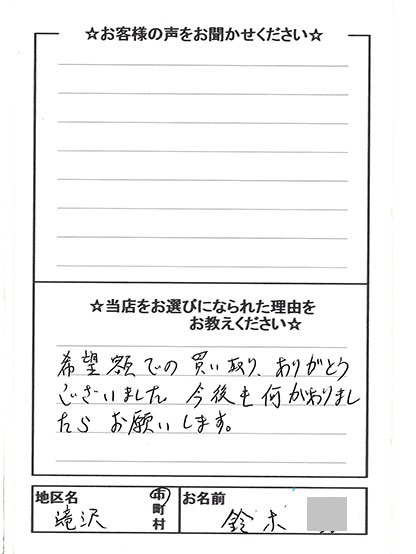 ☆お客様の声をお聞かせください☆
☆当店をお選びになられた理由を
お教えください☆
希望額での買い取り、ありがとう
ございました。今後も何かありまし
たら お願いします。
地区名 市 お名前
町
滝沢 村 鈴木